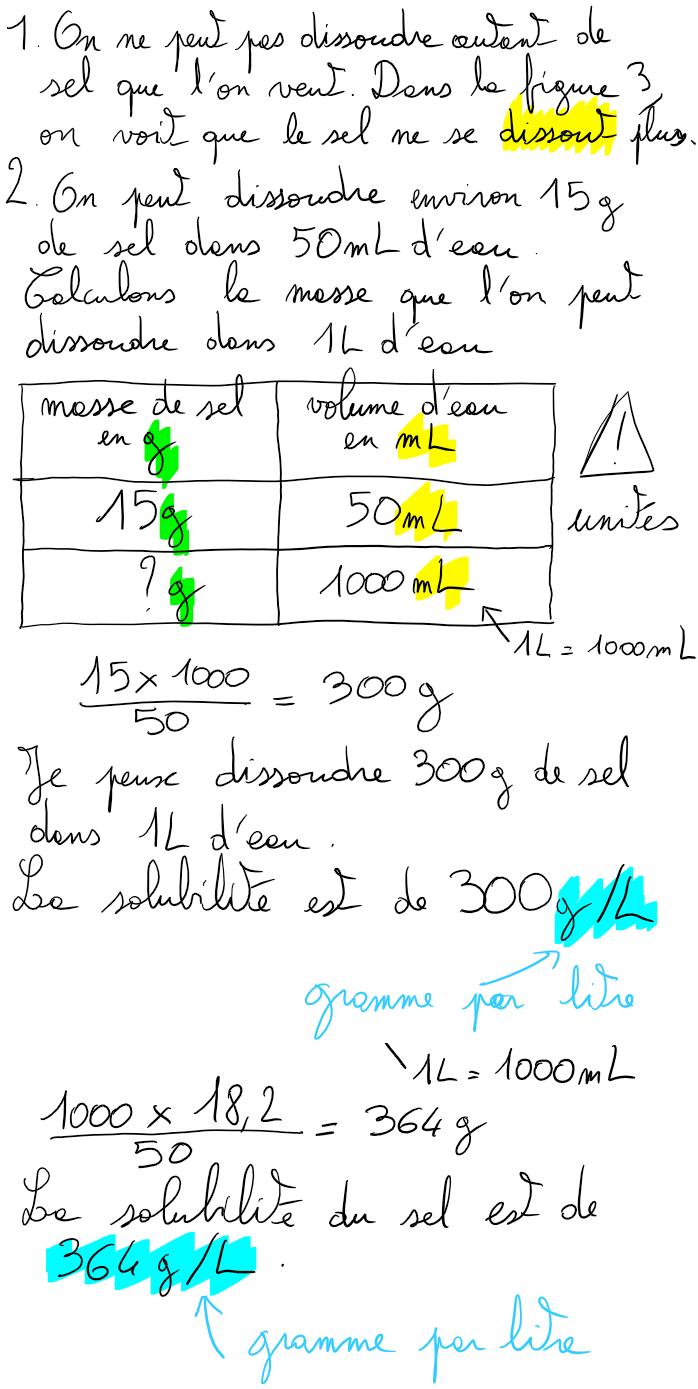 1. On ne peut pas dissoudre autant de
sel que l'on veut. Dans la figure 3,
on voit que le sel ne se dissout plus.
2. On peut dissoudre environ 15g
de sel dans 50mL d'eau.
Calculons la masse que l'on peut
dissoudre dans 1L d'eau
masse de sel
en g
volume d'eau
en mL
!
15g
50mL
unités
? g
1000 mL
1L = 1000mL
15 x 1000
50
= 300 g
Je peux dissoudre 300g de sel
dans 1L d'eau.
La solubilité est de 300g/L
gramme par litre
1L = 1000mL
1000 x 18,2
50
= 364 g
La solubilité du sel est de
364 g/L.
gramme par litre